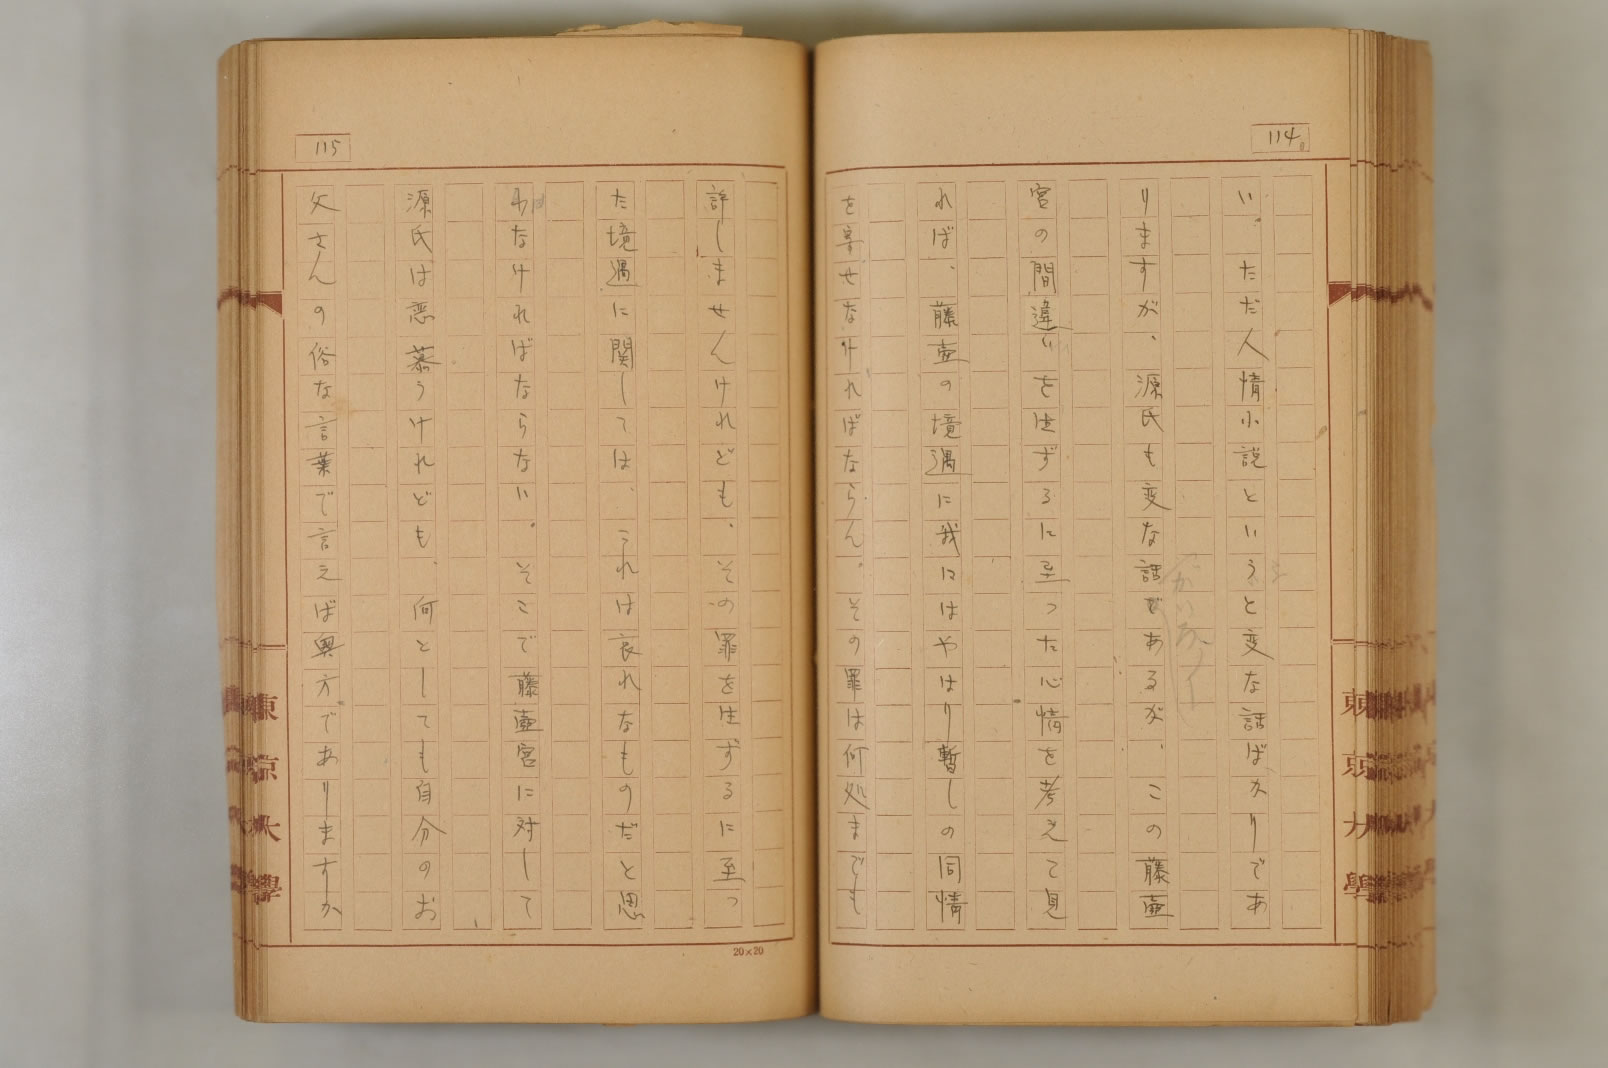 114
い。ただ人情小説というと変な話ばかりであ
りますが、源氏も変な話であるが、この藤壷
宮の間違いを生ずるに至った心情を考えて見
れば、藤壷の境遇に我にはやはり暫しの同情
を寄せなければならん。その罪は何処までも
115
許しませんけれども、その罪を生ずるに至っ
た境遇に関しては、これは哀れなものだと思
わなければならない。そこで藤壷宮に対して
源氏は恋慕うけれども、何としても自分のお
父さんの俗な言葉で言えば奥方でありますか
20×20
東京大學
東京大學